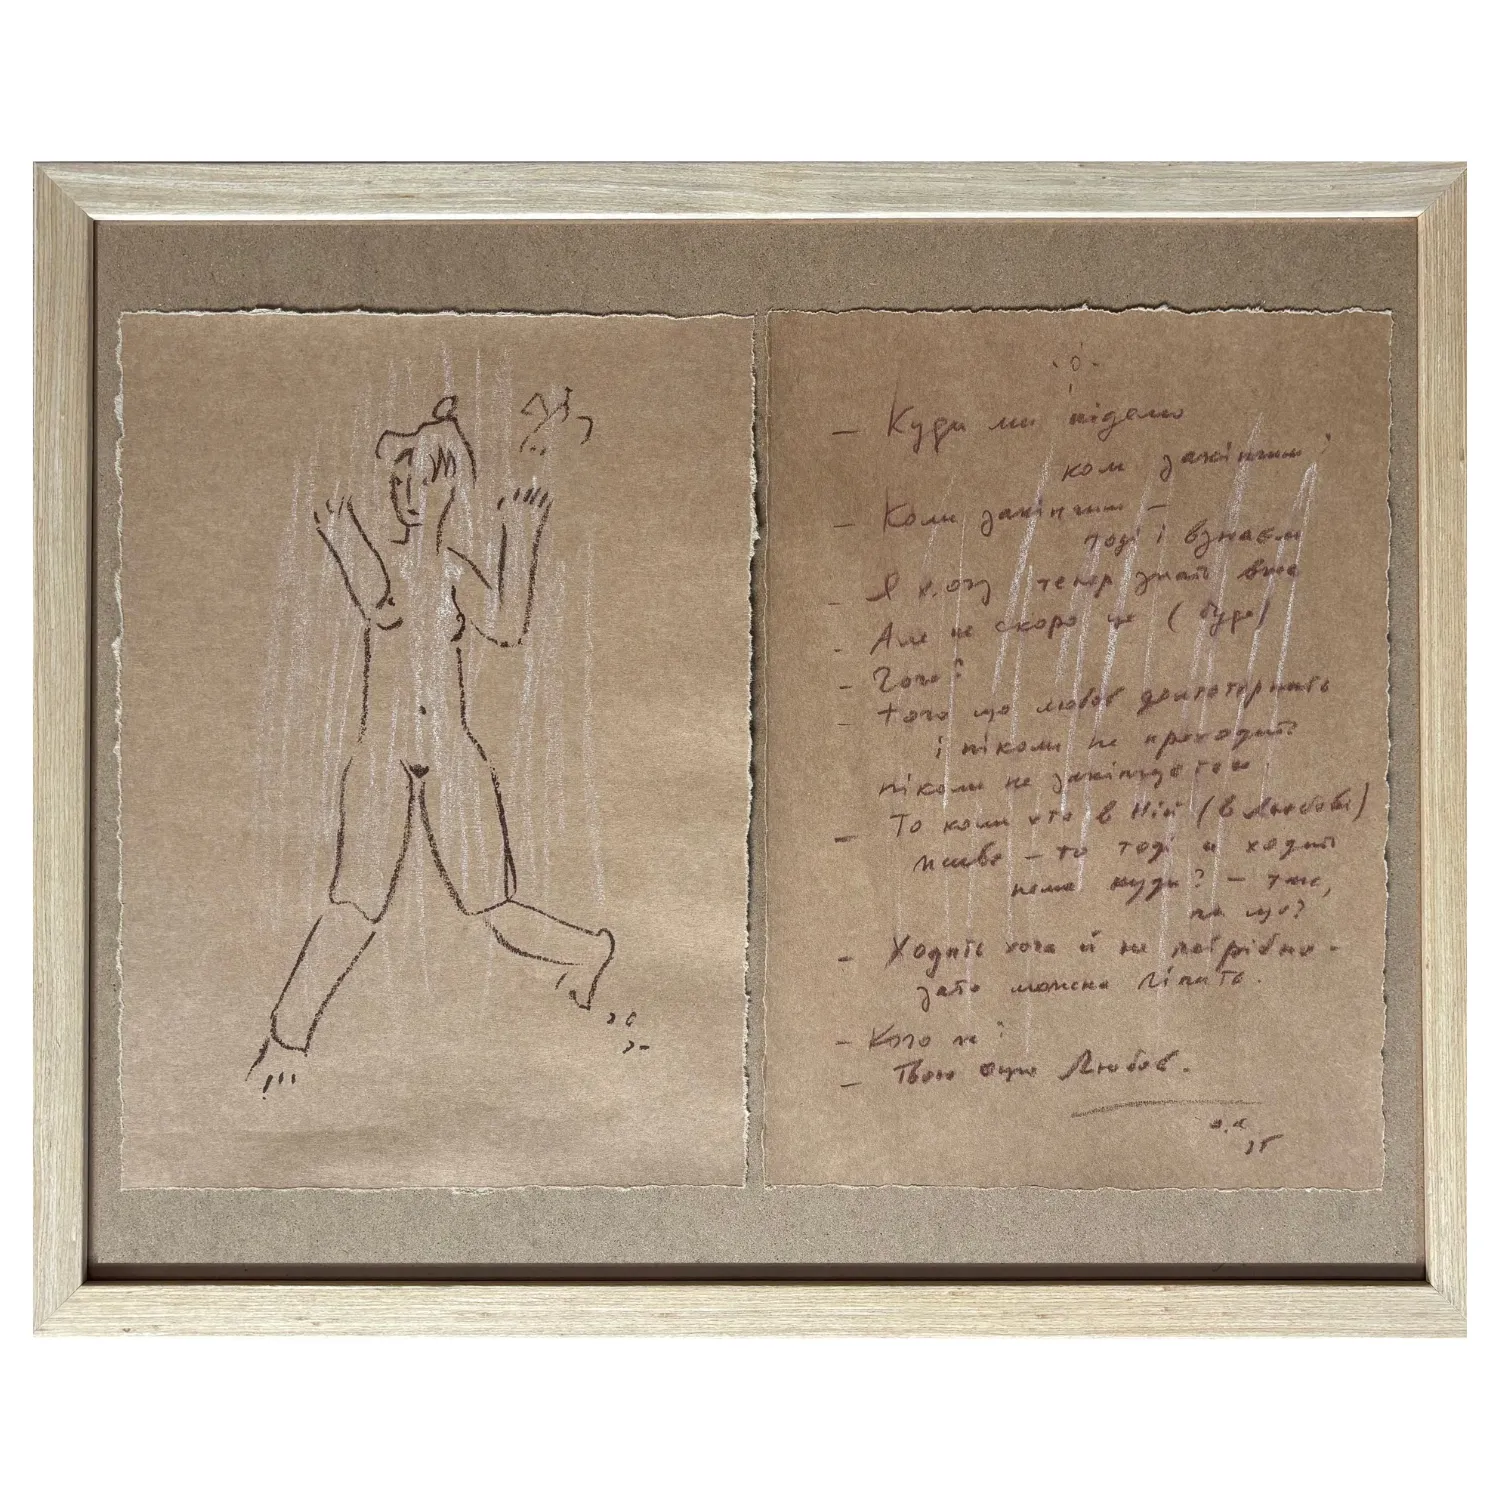 – Куди ми підемо
коли закінчим?
– Коли закінчим –
тоді і взнаєм
– Я хочу тепер знать вже
– Але не скоро це (буде)
– Чого?
– Того що любов довготерпить
і ніколи не проходит?
ніколи не закінчуєтся.
– То коли хто в Ній (в Любові)
живе – то тоді й ходит
нема куди? – так,
по що?
– Ходить хоча й не потрібно –
зато можна ліпить.
– Кого ж?
– Твою оцю Любов.